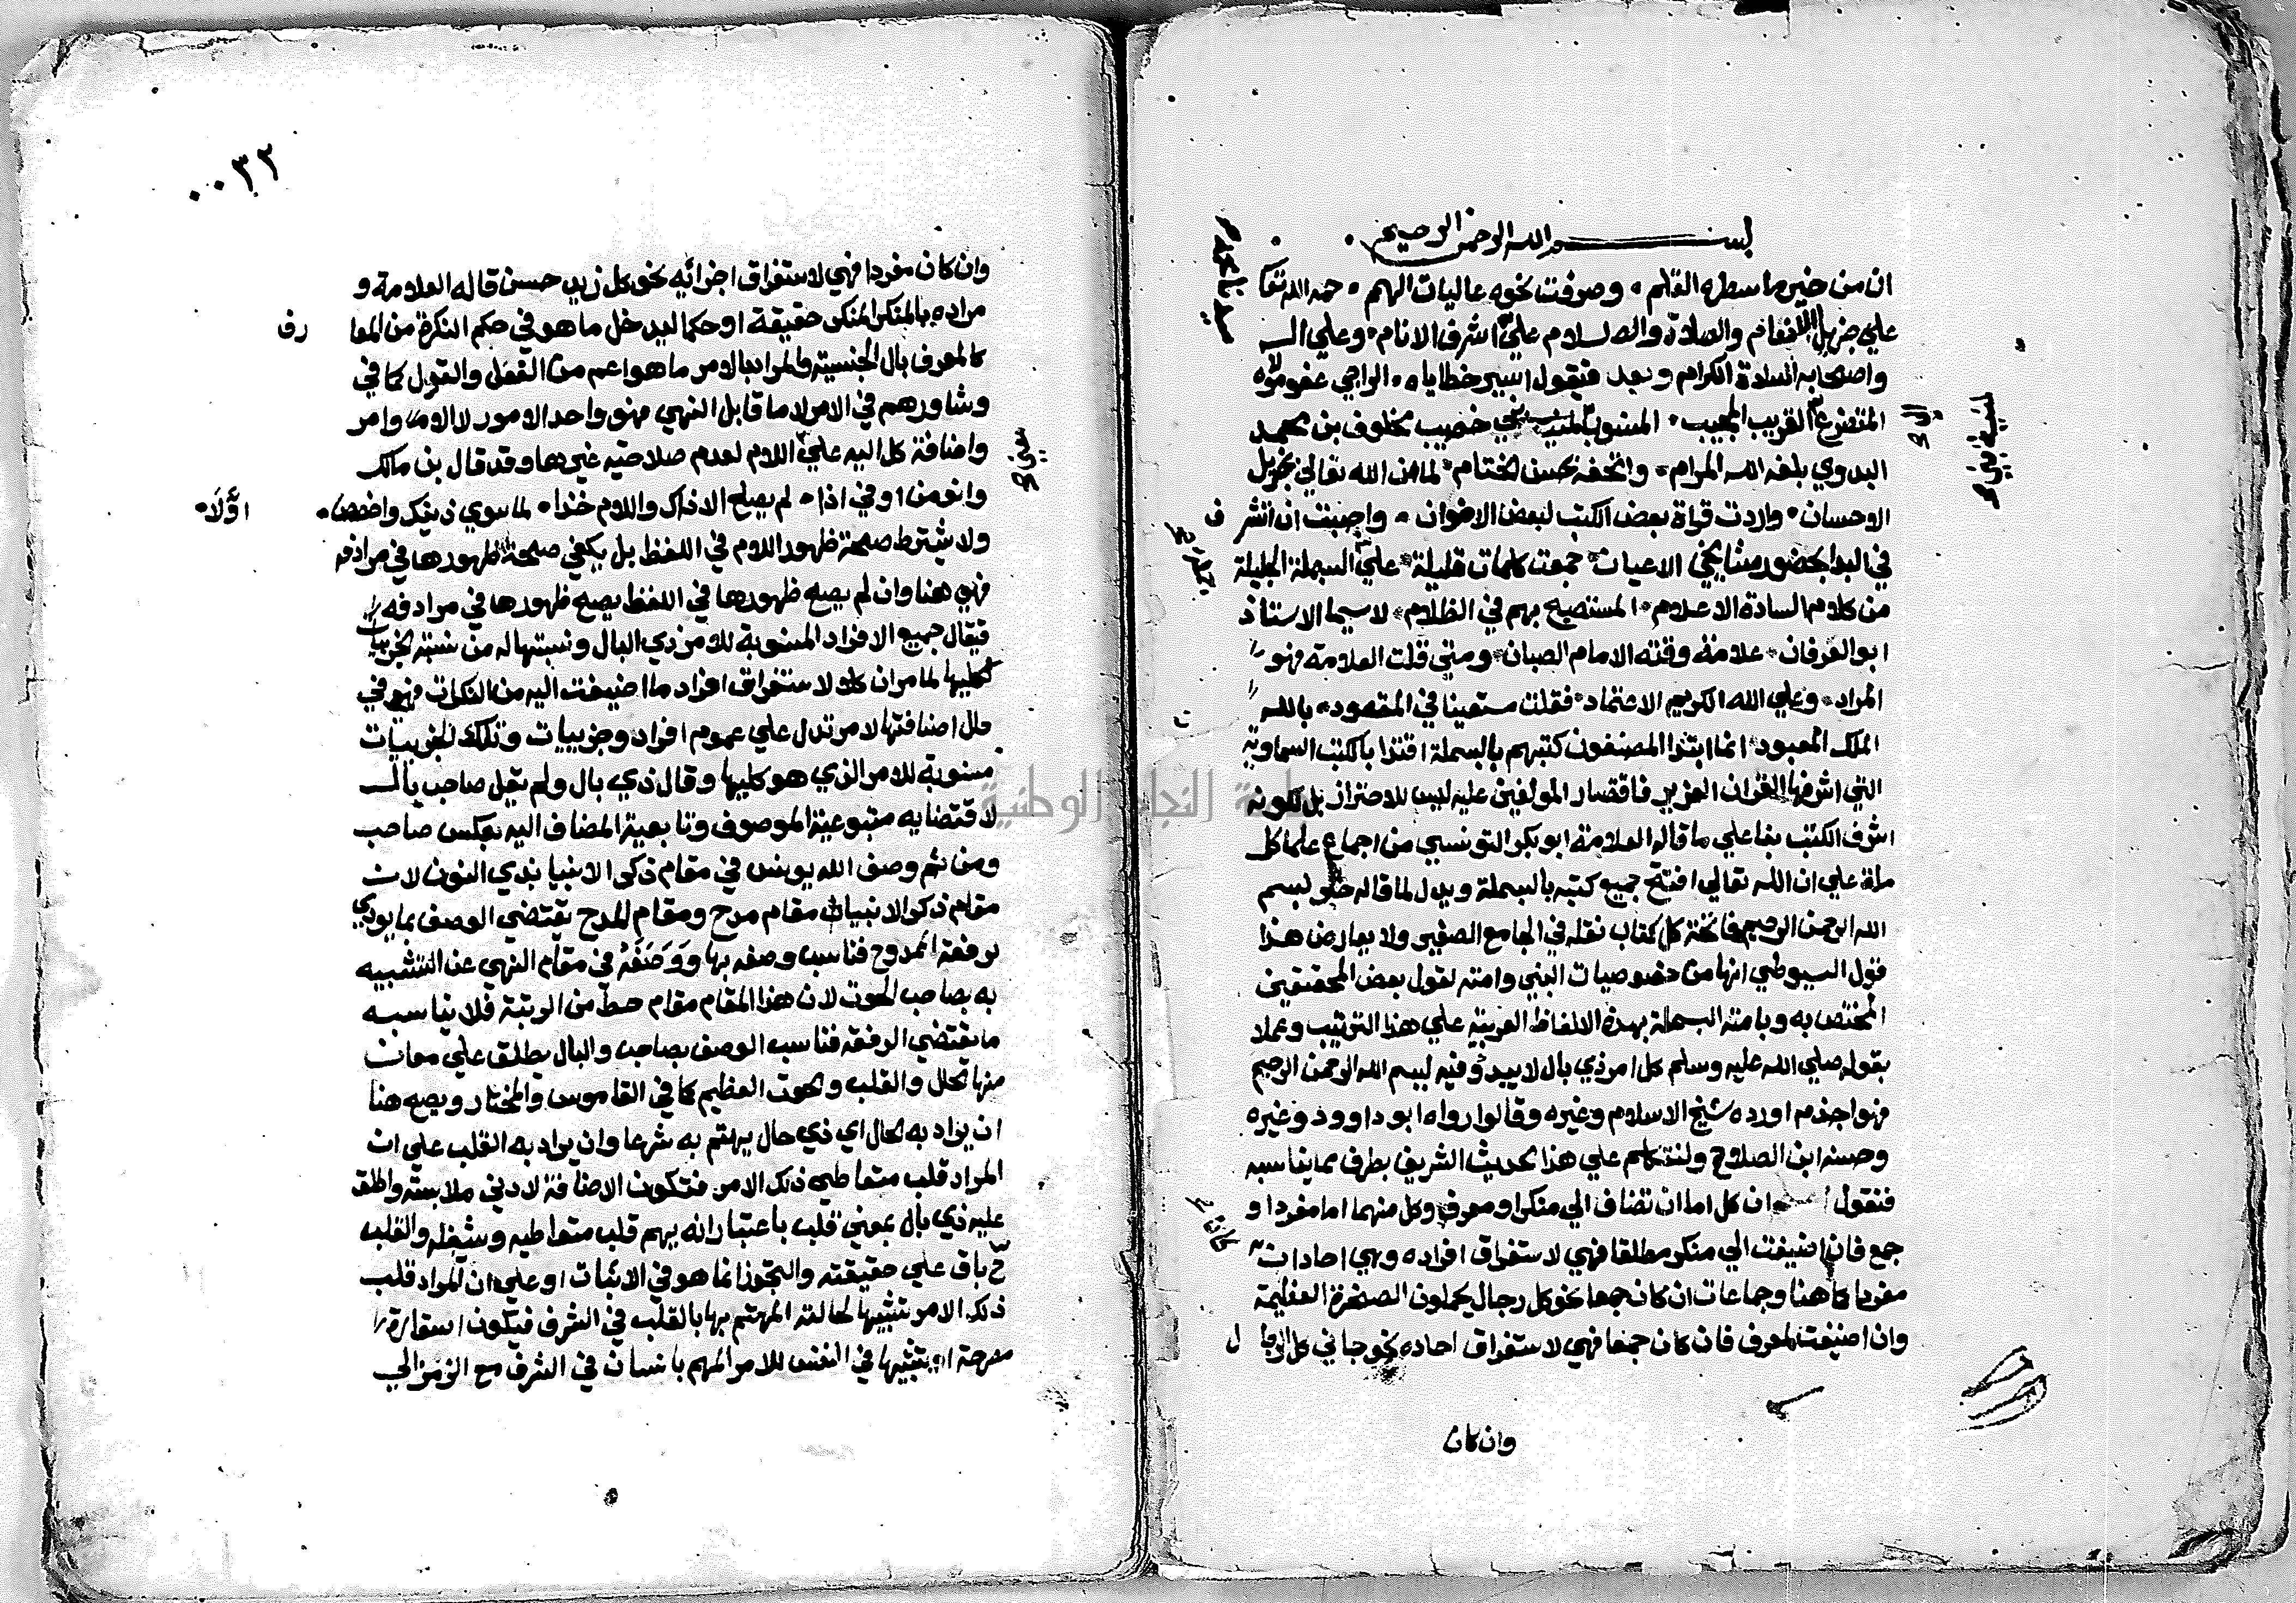 بسم الله الرحمن الرحيم
ان من خير ما سطره القلم وصرفت نحوه عاليات الهمم حمد الله تعا
علي جزيل الانعام والصلاة والسلام علي اشرف الانام وعلي اله
واصحابه السادة الكرام وبعد فيقول اسير خطاياه الراجي عفو مولاه
المتضرع القريب المجيب المنسوب لمنية خصيب مخلوف بن محمد
البدوي بلغه الله المرام واتحفه بحسن الختام لما من الله تعالي بجزيل
الاحسان واردت قراة بعض الكتب لبعض الاخوان واحببت ان اتشرف
في البدا بحضور مشايخي الاعيان جمعت كلمات قليلة علي البسملة الجليلة
من كلام السادة الاعلام المستصبح بهم في الظلام لا سيما الاستاذ
ابو العرفان علامة وقته الامام الصبان ومتي قلت العلامة فهو
المراد وعلي الله الكريم الاعتماد فقلت مستعينا في المقصود بالله
الملك المعبود انما ابتدا المصنفون كتبهم بالبسملة اقتدا بالكتب السماوية
التي اشرفها القران العزيز فاقتصار المولفين عليه ليس للاحتراز بل لكونه
اشرف الكتب بنا علي ما قاله العلامة ابو بكر التونسي من اجماع علما كل
ملة علي ان الله تعالي افتتح جميع كتبه بالبسملة ويدل لما قاله خبر بسم
الله الرحمن الرحيم فاتحة كل كتاب نقله في الجامع الصغير ولا يعارض هذا
قول السيوطي انها من خصوصيات النبي وامته لقول بعض المحققين
المختص به وبامته البسملة بهذه الالفاظ العربية علي هذا الترتيب وعملا
بقوله صلي الله عليه وسلم كل امر ذي بال لا يبدؤ فيه ببسم الله الرحمن الرحيم
فهو اجذم اورده شيخ الاسلام وغيره وقالوا رواه ابو داوود وغيره
وحسنه ابن الصلاح ولنتكلم علي هذا الحديث الشريف بطرف مما يناسبه
فنقول ان كل اما ان تضاف الي منكر او معرف وكل منهما اما مفرد او
جمع فان اضيفت الي منكر مطلقا فهي لاستغراق افراده وهي احاد ان
مفردا كما هنا وجماعات ان كان جمعا نحو كل رجال يحملون الصخرة العظيمة
وان اضيفت لمعرف فان كان جمعا فهي لاستغراق احاده نحو جاني كل الرجال
وان كان
٠٠٣٢
وان كان مفردا فهي لاستغراق اجزائه نحو كل زيد حسن قاله العلامة و
مراده بالمنكر المنكر حقيقة او حكما ليدخل ما هو في حكم النكرة من المعارف
كالمعرف بال الجنسية والمراد بالامر ما هو اعم من الفعل والقول كما في
وشاورهم في الامر لا ما قابل النهي فهو واحد الامور لا الاوامر
واضافة كل اليه علي اللام لعدم صلاحية غيرها وقد قال بن مالك
وانو من او في اذا لم يصلح الا ذاك واللام خذا لما سوي ذينك واخصص اولا
ولا يشترط صحة ظهور اللام في اللفظ بل يكفي صحة ظهورها في مرادفه
فهي هنا وان لم يصح ظهورها في اللفظ يصح ظهورها في مرادفه
فيقال جميع الافراد المنسوبة للامر ذي البال ونسبتها له من نسبة الجزييات
لكليها لما مر ان كلا لاستغراق افراد ما اضيفت اليه من النكرات فهي في
حال اضافتها لامر تدل علي عموم افراد وجزييات وتلك الجزييات
منسوبة للامر الذي هو كليها وقال ذي بال ولم يقل صاحب بال
لاقتضايه متبوعية الموصوف وتابعية المضاف اليه بعكس صاحب
ومن ثم وصف الله يونس في مقام ذكر الانبيا بذي النون لان
مقام ذكر الانبيا مقام مدح ومقام المدح يقتضي الوصف بما يودي
لرفعة الممدوح فناسب وصفه بها ووصفه في مقام النهي عن التشبيه
به بصاحب الحوت لان هذا المقام مقام حط من الرتبة فلا يناسبه
ما يقتضي الرفعة فناسب الوصف بصاحب والبال يطلق علي معان
منها الحال والقلب والحوت العظيم كما في القاموس والمختار ويصح هنا
ان يراد به الحال اي ذي حال يهتم به شرعا وان يراد به القلب علي ان
المراد قلب متعاطي ذلك الامر فتكون الاضافة لادني ملابسة واطلق
عليه ذي بال بمعني قلب باعتبار انه يهم قلب متعاطيه ويشغله والقلب
ح باق علي حقيقته والتجوز انما هو في الاثبات او علي ان المراد قلب
ذلك الامر تشبيها لحالته المهتم بها بالقلب في الشرف فيكون استعارة
مصرحة او تشبيها في النفس للامر المهم بانسان في الشرف مع الرمز الي